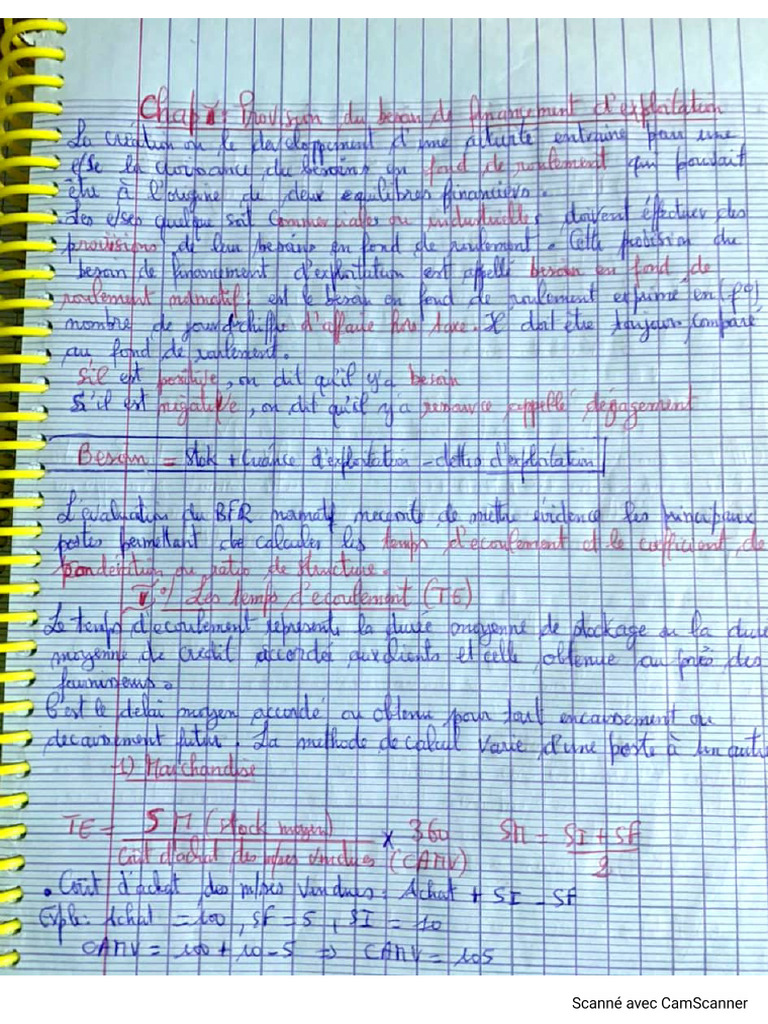 Chap I: Provision du besoin de financement d'exploitation
La création ou le developpement d'une activité entraine pour une
e/se la croissance du besoins en fond de roulement qui pouvait
être à l'origine de deux equilibres financiers.
Les e/ses quelque soit commerciales ou industrielles doivent éffectuer des
provisions de leur besoins en fond de roulement. Cette provision du
besoin de financement d'exploitation est appellé besoin en fond de
roulement normatif; est le besoin en fond de roulement exprimé en
nombre de jour de chiffre d'affaire hors taxe. Il doit être toujours comparé
au fond de roulement.
S'il est positive, on dit qu'il y'a besoin
S'il est négative, on dit qu'il y'a ressource appellé dégagement
Besoin = stok + créance d'exploitation - dettes d'exploitation
L'evaluation du BFR normatif necessite de mettre évidence les principaux
postes permettant de calculer les temps d'ecoulement et le coefficient de
ponderation ou ratio de structure.
I°/ Les temps d'ecoulement (TE)
Le temps d'ecoulement represente la durée moyenne de stockage ou la durée
moyenne de credit accordée aux clients et celle obtenue au près des
fournisseurs.
C'est le délai moyen accordé ou obtenu pour tout encaissement ou
decaissement futur. La methode de calcul varie d'une poste à un autre
1) Marchandise
TE = SM (stock moyen) / Coût d'achat des m/ses vendues (CAMV) x 360 SM = SI + SF / 2
. Coût d'achat des m/ses vendues = Achat + SI - SF
Exple: Achat = 100, SF = 5, SI = 10
CAMV = 100 + 10 - 5 => CAMV = 105
Scanné avec CamScanner